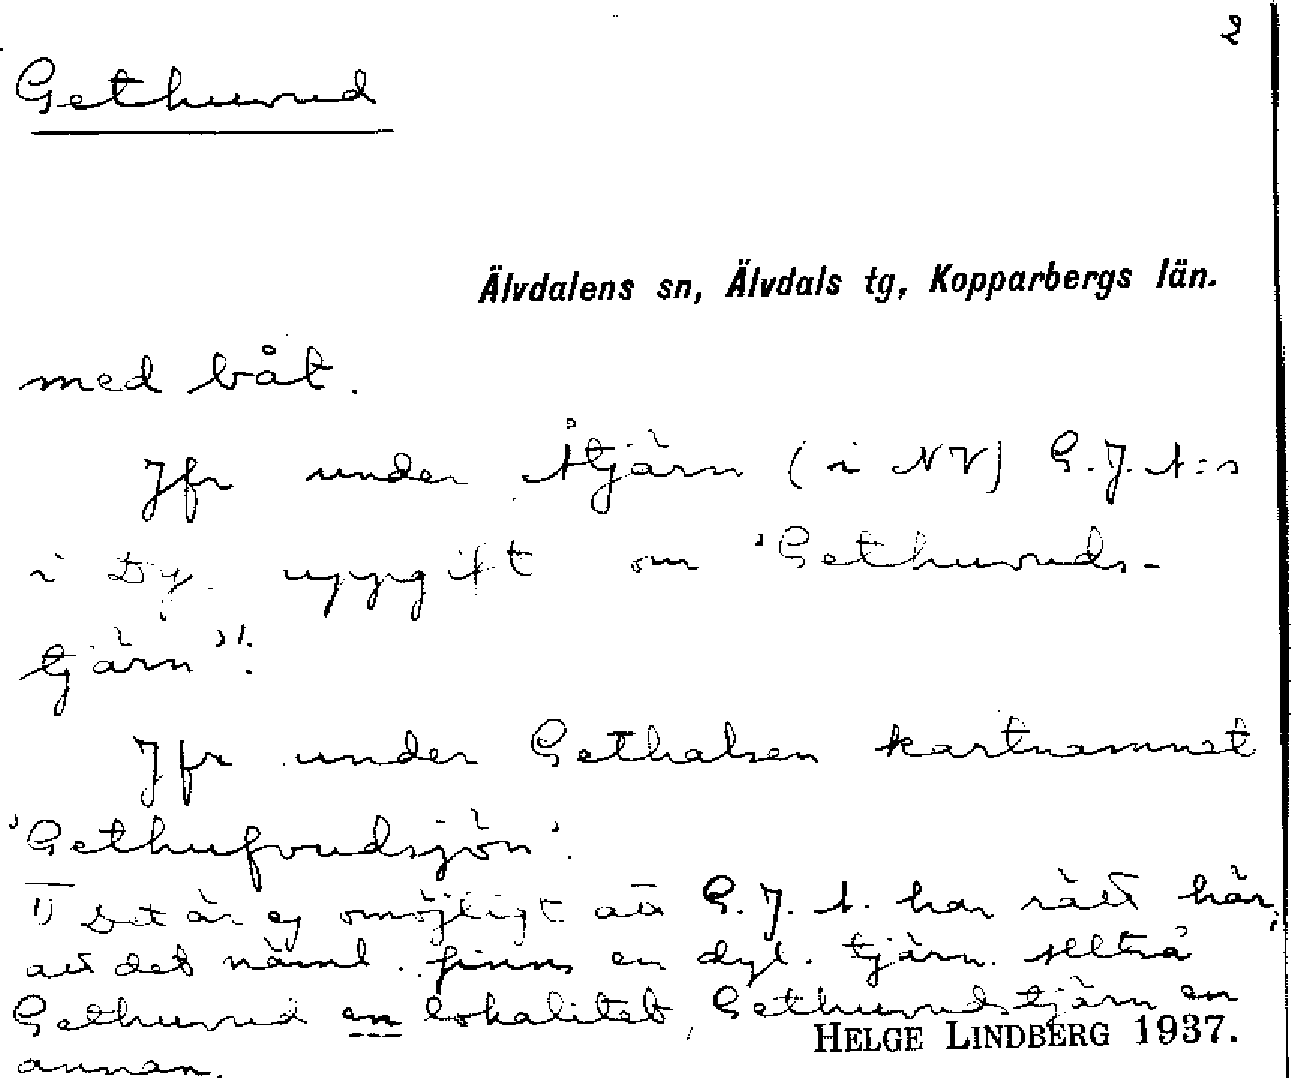 2
Gethuvud
Älvdalens sn, Älvdals tg, Kopparbergs län.
med båt.
Jfr under Åtjärn (i NV) G. J. A:s
i Dy. uppgift om 'Gethuvuds-
tjärn' 1.
Jfr under Gethalsen kartnamnet
'Gethufvudsjön'.
1) Det är ej omöjligt att G. J. A. har rätt här,
att det näml. finns en dyl. tjärn. Alltså
Gethuvud en lokalitet, Gethuvudstjärn en
HELGE LINDBERG 1937.
annan.